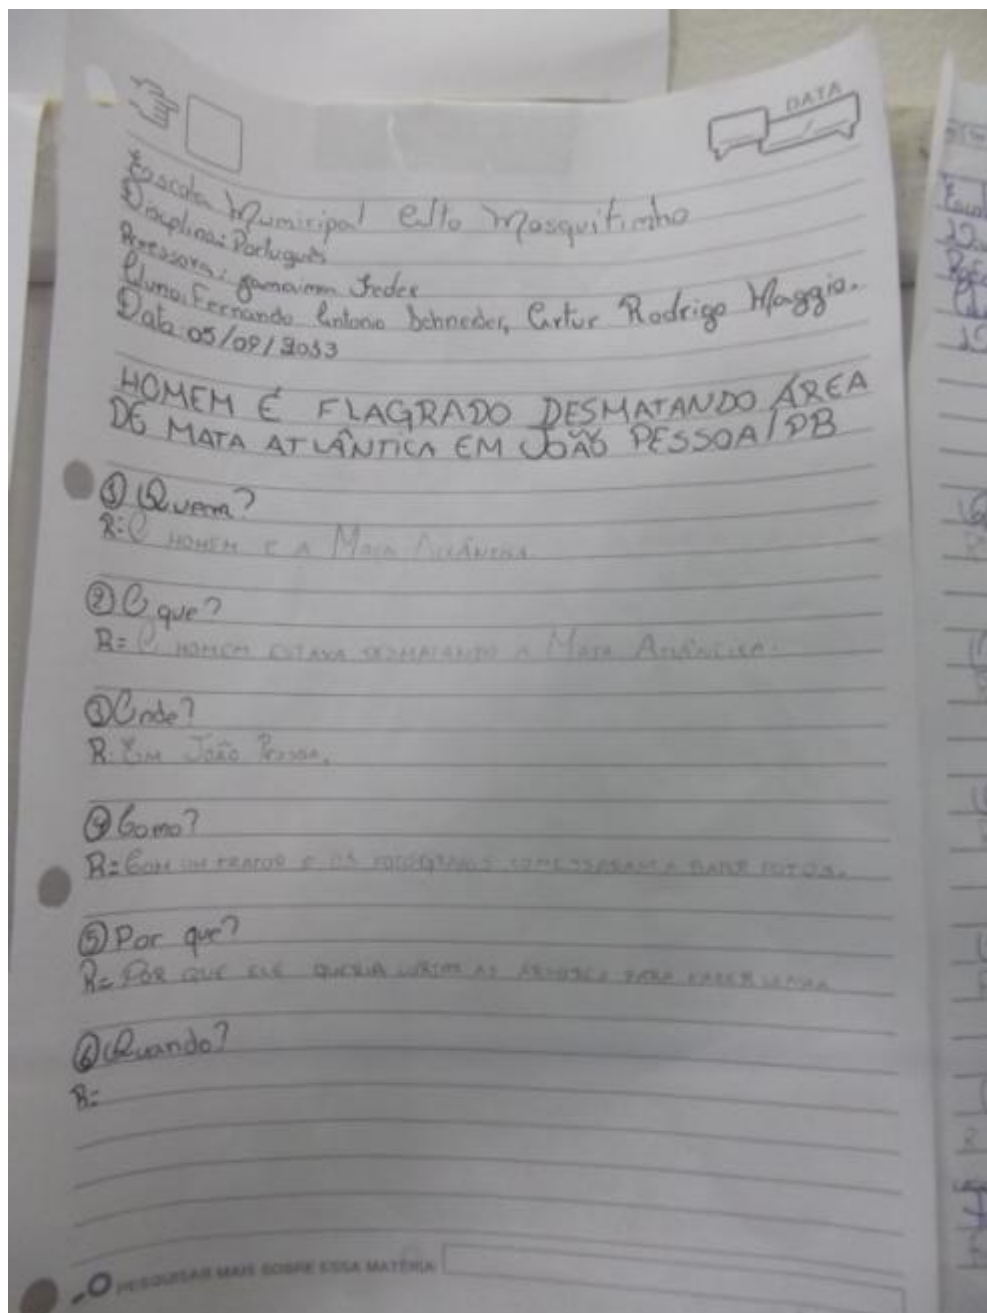 DATA
Escola Municipal Alto Mosquitinho
Disciplina: Português
Professora: Janaina Feder
Aluno: Fernando Antonio Schneder, Artur Rodrigo Maggio.
Data: 05/09/2013
HOMEM É FLAGRADO DESMATANDO ÁREA
DE MATA ATLÂNTICA EM JOÃO PESSOA/PB
① Quem?
R: O HOMEM E A MATA ATLÂNTICA.
② O que?
R= O HOMEM ESTAVA DESMATANDO A MATA ATLÂNTICA.
③ Onde?
R: EM JOÃO PESSOA.
④ Como?
R= COM UM TRATOR E OS FOTOGRAFOS COMESSARAM A BATER FOTOS.
⑤ Por que?
R= POR QUE ELE QUERIA CORTAR AS ÁRVORES PARA FAZER LENHA
⑥ Quando?
R=
PESQUISAR MAIS SOBRE ESSA MATÉRIA